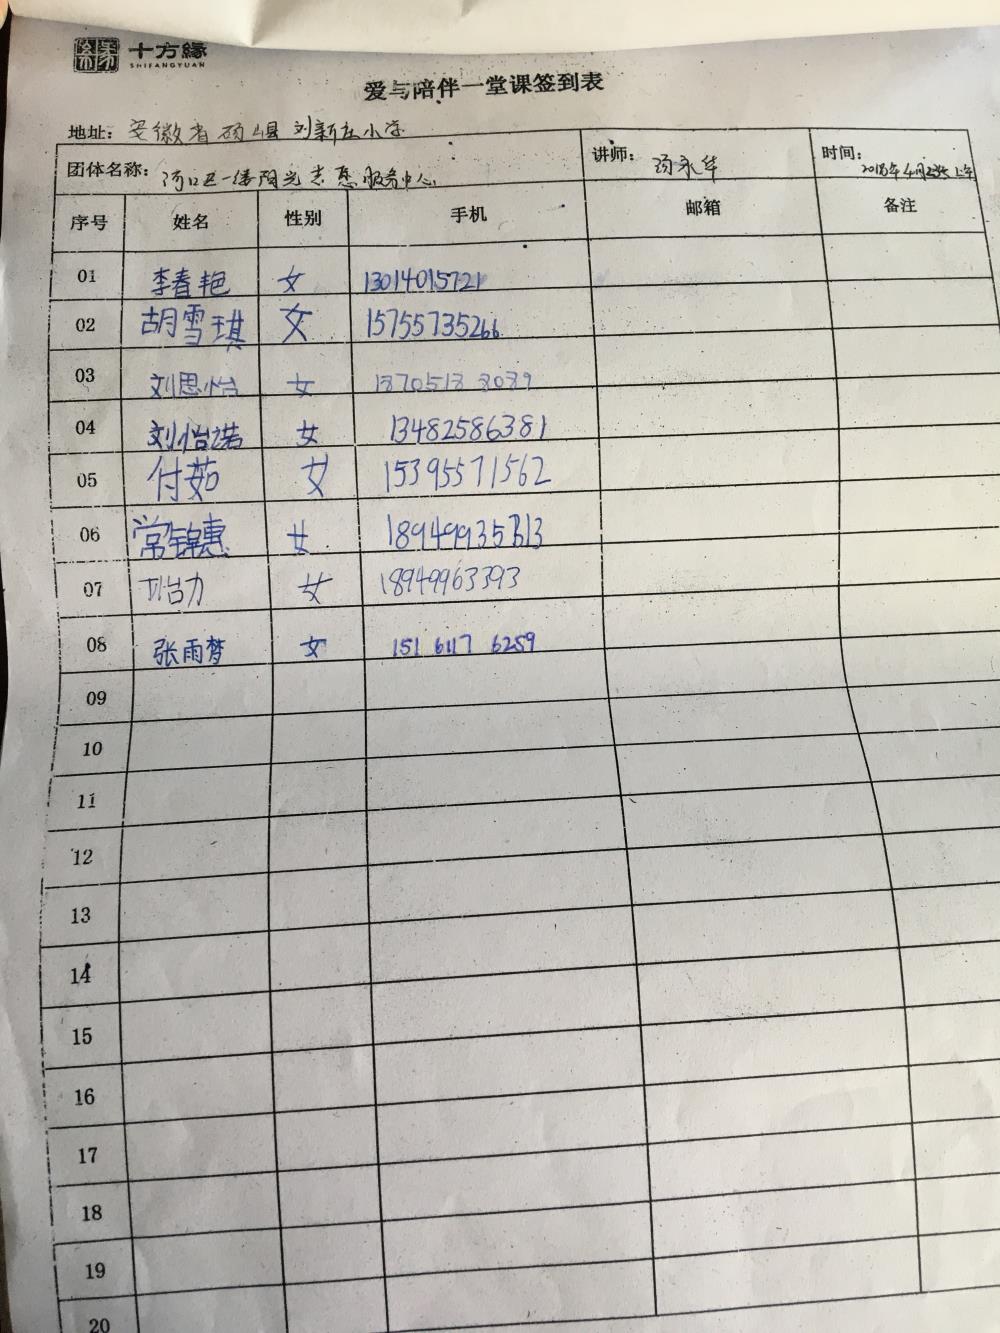 十方緣
SHIFANGYUAN
爱与陪伴一堂课签到表
地址：安徽省砀山县刘新庄小学
团体名称：河口区一缕阳光志愿服务中心 讲师：汤永华 时间：2018年4月 上午
序号 姓名 性别 手机 邮箱 备注
01 李春艳 女 13014015721
02 胡雪琪 女 15755735266
03 刘思怡 女
04 刘怡诺 女 13482586381
05 付茹 女 15395571562
06 常锦惠 女
07 女 18949963393
08 张雨梦 女 151 6117 6259
09
10
11
12
13
14
15
16
17
18
19
20